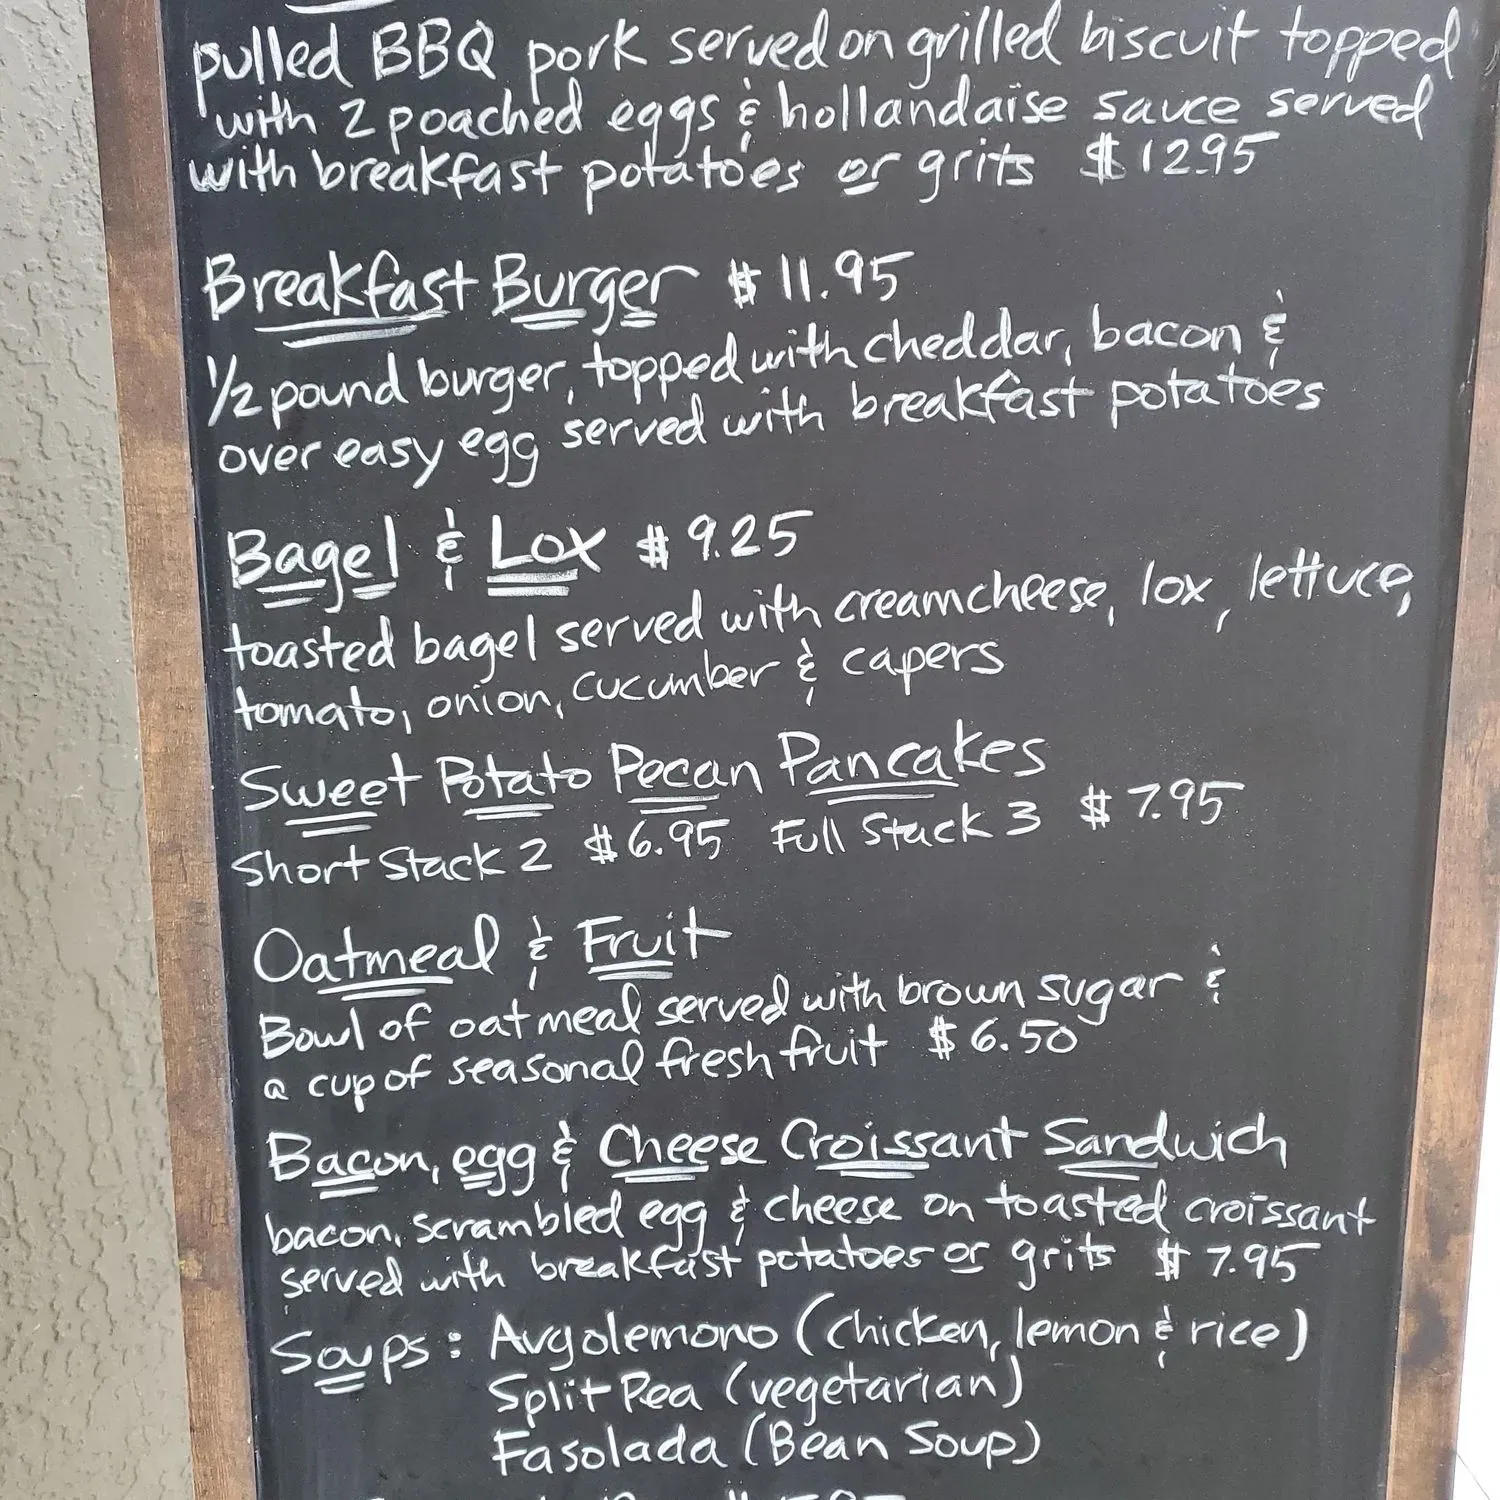 pulled BBQ pork served on grilled biscuit topped
with 2 poached eggs & hollandaise sauce served
with breakfast potatoes or grits $12.95
Breakfast Burger $11.95
1/2 pound burger, topped with cheddar, bacon &
over easy egg served with breakfast potatoes
Bagel & Lox $9.25
toasted bagel served with creamcheese, lox, lettuce,
tomato, onion, cucumber & capers
Sweet Potato Pecan Pancakes
Short Stack 2 $6.95 Full Stack 3 $7.95
Oatmeal & Fruit
Bowl of oatmeal served with brown sugar &
a cup of seasonal fresh fruit $6.50
Bacon, egg & Cheese Croissant Sandwich
bacon, scrambled egg & cheese on toasted croissant
served with breakfast potatoes or grits $7.95
Soups: Avgolemono (chicken, lemon & rice)
Split Pea (vegetarian)
Fasolada (Bean Soup)